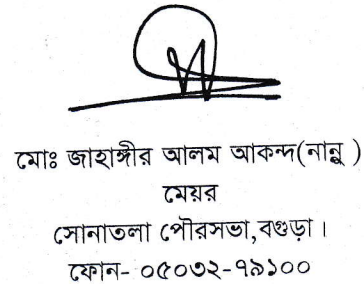 মোঃ জাহাঙ্গীর আলম আকন্দ(নান্নু )
মেয়র
সোনাতলা পৌরসভা,বগুড়া ।
ফোন- ০৫০৩২-৭৯১০০